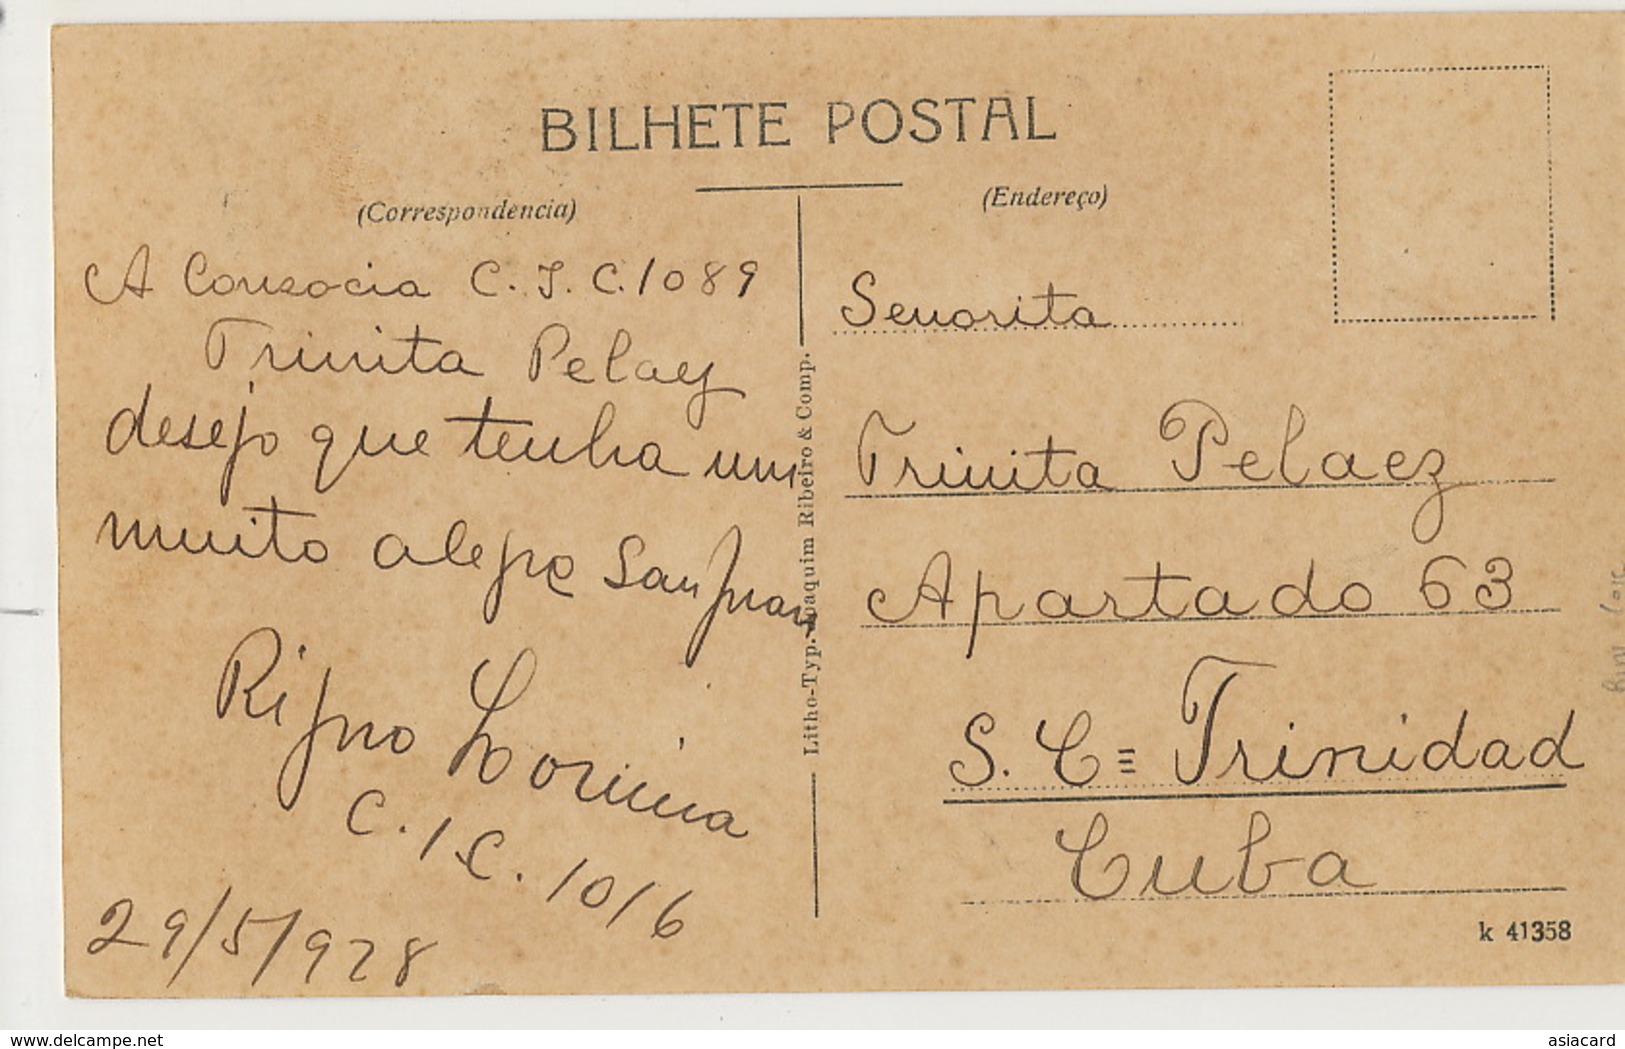 BILHETE POSTAL
(Correspondencia)
(Endereço)
A Consocia C. I. C. 1089
Trinita Pelaez
desejo que tenha um
muito alegre San Juan
C. I. C. 1016
29/5/928
Litho-Typ. Joaquim Ribeiro & Comp.
Senorita
Trinita Pelaez
Apartado 63
S. C = Trinidad
Cuba
k 41358
www.delcampe.net
asiacard